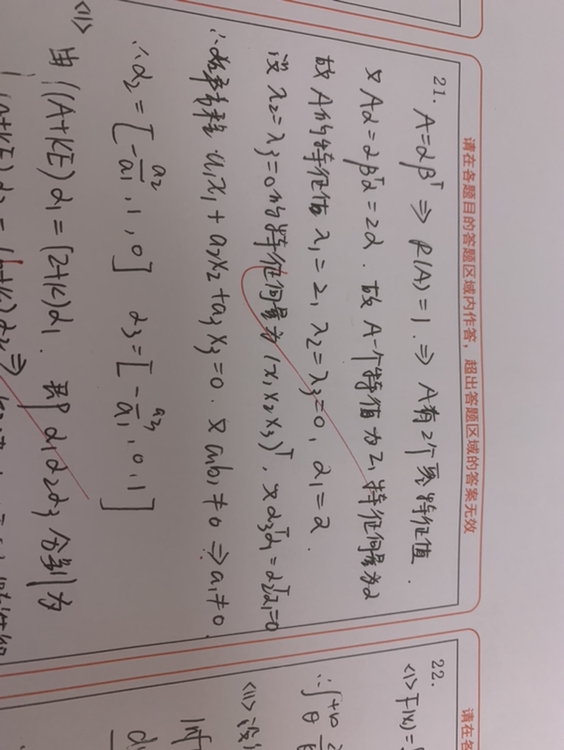 请在各题目的答题区域内作答，超出答题区域的答案无效
21. A=αβᵀ ⇒ R(A)=1. ⇒ A有2个零特征值.
又Aα=αβᵀα=2α. 故A一个特征值为2, 特征向量为α
故A的特征值 λ₁=2, λ₂=λ₃=0, α₁=α.
设λ₂=λ₃=0的特征向量为(x₁x₂x₃)ᵀ, 又α₃ᵀα₁=α₂ᵀα₁=0
a₁x₁+a₂x₂+a₃x₃=0. 又a₁b₁≠0 ⇒ a₁≠0.
∴α₂=[-a₂/a₁, 1, 0] α₃=[-a₃/a₁, 0, 1]
<11> 由 (A+kE)α₁=(2+k)α₁. 即α₁α₂α₃分别为
请在各
22.
<1> F(x)=
∴∫
<11> 设